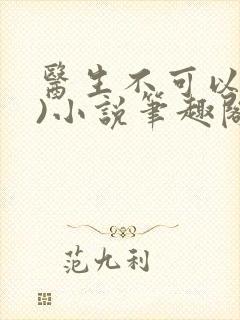 醫生不可以
)小說筆趣閣
范九利